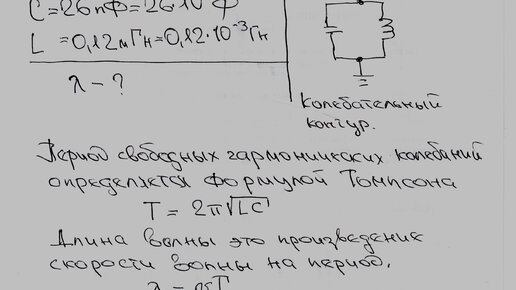 C = 26 пФ = 26·10 Ф
L = 0,12 мГн = 0,12·10⁻³ Гн
λ – ?
Колебательный
контур.
Период свободных гармонических колебаний
определяется формулой Томпсона
T = 2π√LC
Длина волны это произведение
скорости волны на период.